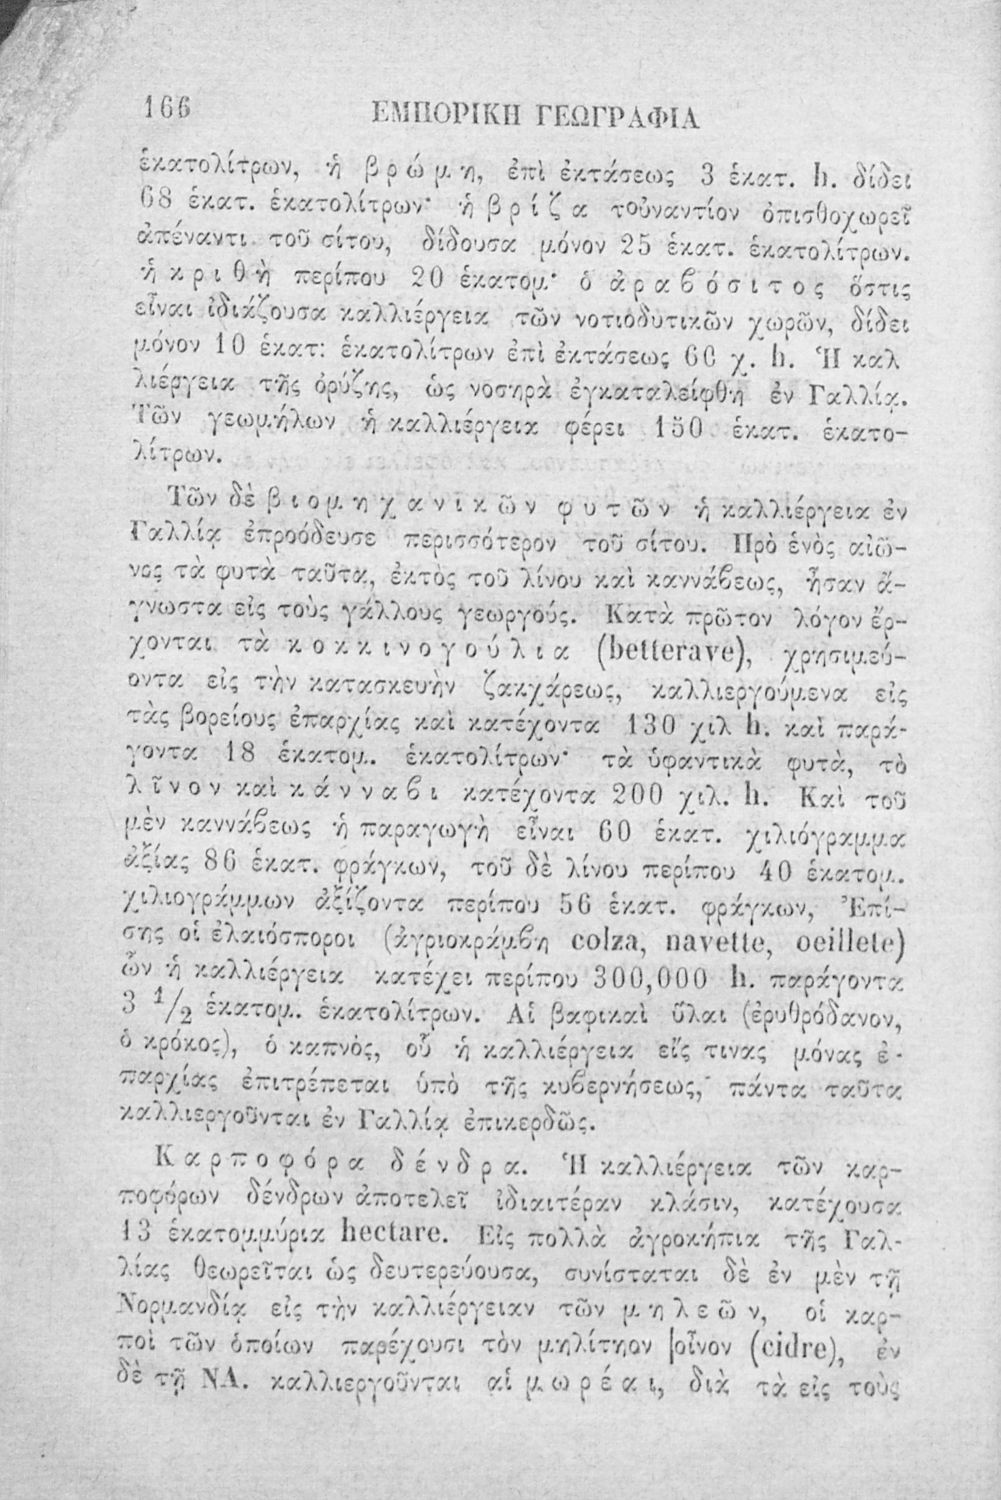 166 ΕΜΠΟΡΙΚΗ ΓΕΩΓΡΑΦΙΑ
ἑκατολίτρων, ἡ βρώμη, ἐπὶ ἐκτάσεως 3 ἑκατ. h. δίδει
68 ἑκατ. ἑκατολίτρων· ἡ βρίζα τοὐναντίον ὀπισθοχωρεῖ
ἀπέναντι τοῦ σίτου, δίδουσα μόνον 25 ἑκατ. ἑκατολίτρων.
ἡ κριθὴ περίπου 20 ἑκατομ· ὁ ἀραβόσιτος ὅστις
εἶναι ἰδιάζουσα καλλιέργεια τῶν νοτιοδυτικῶν χωρῶν, δίδει
μόνον 10 ἑκατ: ἑκατολίτρων ἐπὶ ἐκτάσεως 60 χ. h. Ἡ καλ
λιέργεια τῆς ὀρύζης, ὡς νοσηρὰ ἐγκαταλείφθη ἐν Γαλλίᾳ.
Τῶν γεωμήλων ἡ καλλιέργεια φέρει 150 ἑκατ. ἑκατο-
λίτρων.
Τῶν δὲ βιομηχανικῶν φυτῶν ἡ καλλιέργεια ἐν
Γαλλίᾳ ἐπροόδευσε περισσότερον τοῦ σίτου. Πρὸ ἑνὸς αἰῶ-
νος τὰ φυτὰ ταῦτα, ἐκτὸς τοῦ λίνου καὶ καννάβεως, ἦσαν ἄ-
γνωστα εἰς τοὺς γάλλους γεωργούς. Κατὰ πρῶτον λόγον ἔρ-
χονται τὰ κοκκινογούλια (betterave), χρησιμεύ-
οντα εἰς τὴν κατασκευὴν ζακχάρεως, καλλιεργούμενα εἰς
τὰς βορείους ἐπαρχίας καὶ κατέχοντα 130 χιλ h. καὶ παρά-
γοντα 18 ἑκατομ. ἑκατολίτρων· τὰ ὑφαντικὰ φυτὰ, τὸ
λῖνον καὶ κάνναβι κατέχοντα 200 χιλ. h. Καὶ τοῦ
μὲν καννάβεως ἡ παραγωγὴ εἶναι 60 ἑκατ. χιλιόγραμμα
ἀξίας 86 ἑκατ. φράγκων, τοῦ δὲ λίνου περίπου 40 ἑκατομ.
χιλιογράμμων ἀξίζοντα περίπου 56 ἑκατ. φράγκων, Ἐπί-
σης οἱ ἐλαιόσποροι (ἀγριοκράμβη colza, navette, oeillete)
ὧν ἡ καλλιέργεια κατέχει περίπου 300,000 h. παράγοντα
3 1/2 ἑκατομ. ἑκατολίτρων. Αἱ βαφικαὶ ὗλαι (ἐρυθρόδανον,
ὁ κρόκος), ὁ καπνὸς, οὗ ἡ καλλιέργεια εἴς τινας μόνας ἐ-
παρχίας ἐπιτρέπεται ὑπὸ τῆς κυβερνήσεως, πάντα ταῦτα
καλλιεργοῦνται ἐν Γαλλίᾳ ἐπικερδῶς.
Καρποφόρα δένδρα. Ἡ καλλιέργεια τῶν καρ-
ποφόρων δένδρων ἀποτελεῖ ἰδιαιτέραν κλάσιν, κατέχουσα
13 ἑκατομμύρια hectare. Εἰς πολλὰ ἀγροκήπια τῆς Γαλ-
λίας θεωρεῖται ὡς δευτερεύουσα, συνίσταται δὲ ἐν μὲν τῇ
Νορμανδίᾳ εἰς τὴν καλλιέργειαν τῶν μηλεῶν, οἱ καρ-
ποὶ τῶν ὁποίων παρέχουσι τὸν μηλίτηον οἶνον (cidre), ἐν
δὲ τῇ ΝΑ. καλλιεργοῦνται αἱ μωρέαι, διὰ τὰ εἰς τοὺς